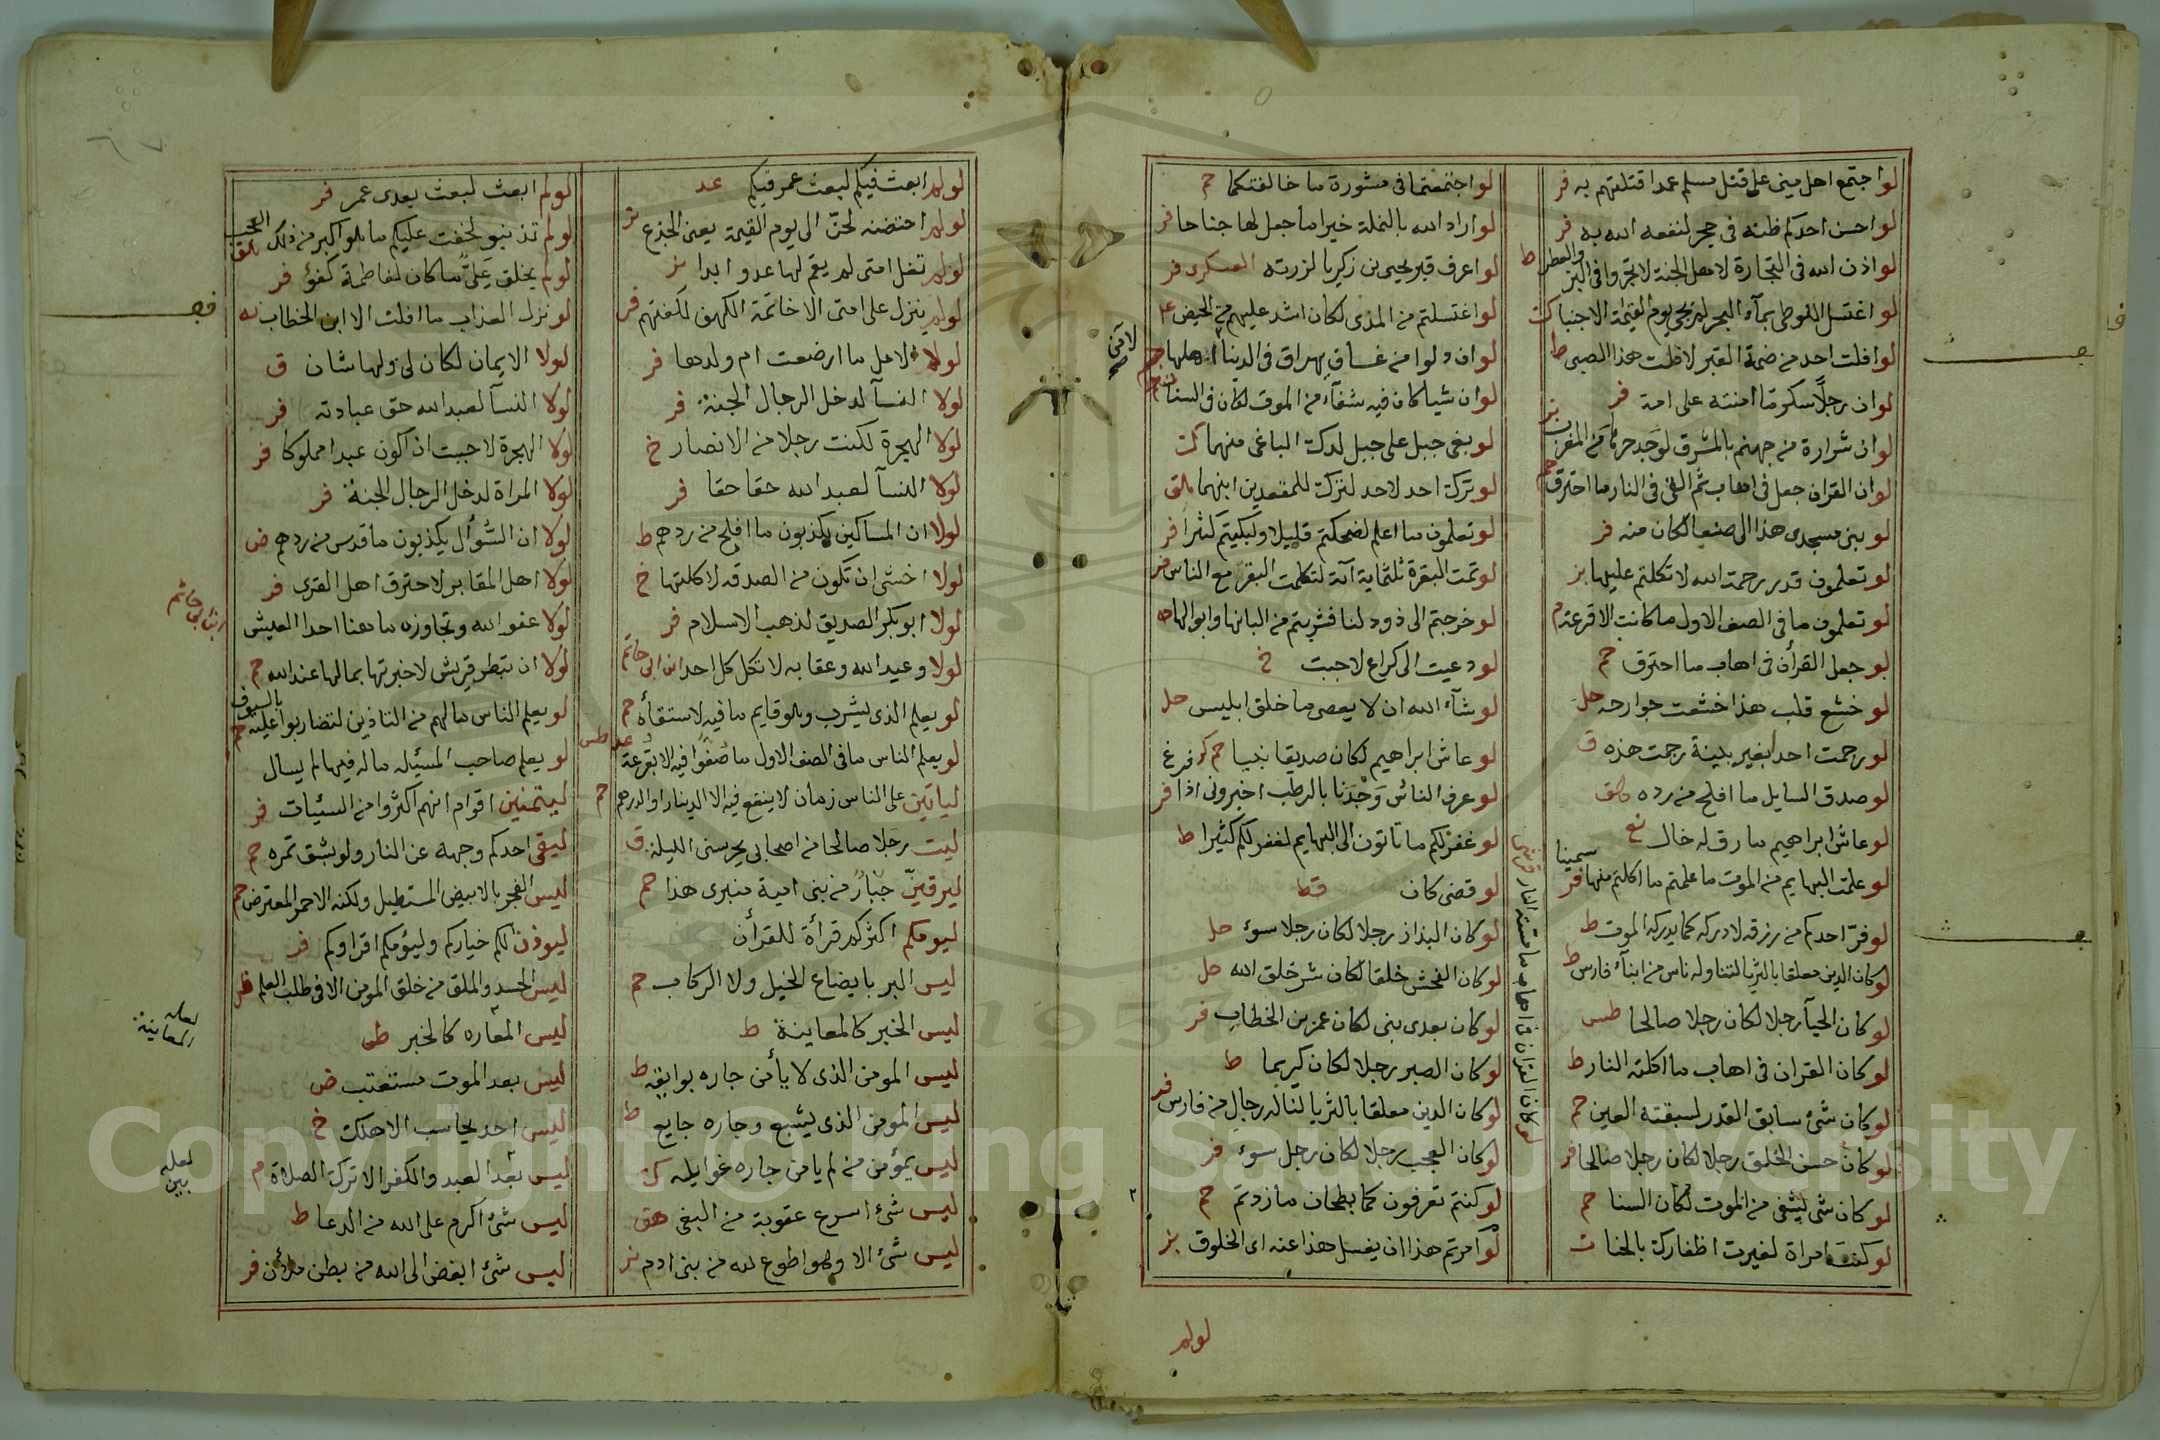 لو اجتمع اهل منى على قتل مسلم عمدا قتلتهم به فر
لو احسن احدكم ظنه فى حجر لنفعه الله به فر
لو اذن الله فى التجارة لاهل الجنة لاتجروا فى البز والعطر ط
لو اغتسل اللوطى بمآء البحر لم يجئ يوم القيمة الا جنبا
لو افلت احد من ضمة القبر لافلت هذا الصبى ط
لو ان رجلا امنته على امة فر
لو ان شرارة من جهنم بالمشرق لوجد حرها من المغرب
لو ان القران جعل فى اهاب ثم القى فى النار ما احترق حم
لو بنى مسجدى هذا الى صنعا لكان منه فر
لو تعلمون قدر رحمة الله لاتكلتم عليها بز
لو تعلمون ما فى الصف الاول ما كانت الا قرعة م
لو جعل القرأن فى اهاب ما احترق حم
لو خشع قلب هذا خشعت جوارحه حل
لو رجمت احدا بغير بينة رجمت هذه ق
لو صدق السايل ما افلح من رده هق
لو عاش ابراهيم ما رق له خال
لو علمت البهايم من الموت ما علمتم ما اكلتم منها سمينا فر
لو فر احدكم من رزقه لادركه كما يدركه الموت ط
لو كان الدين معلقا بالثريا لتناوله ناس من ابنآء فارس ط
لو كان الحيآء رجلا لكان رجلا صالحا طس
لو كان القران فى اهاب ما اكلته النار ط
لو كان شئ سابق القدر لسبقته العين حم
لو كان حسن الخلق رجلا لكان رجلا صالحا فر
لو كان شى يشفى من الموت لكان السنا حم
لو كنت امراة لغيرت اظفارك بالحنا
لو كان القران فى اهاب ما مسته النار
لو اجتمعتما فى مشورة ما خالفتكما حم
لو اراد الله بالنملة خيرا ما جعل لها جناحا فر
لو اعرف قبر يحيى بن زكريا لزرته العسكرى فر
لو اغتسلتم من المذى لكان اشد عليهم من الحيض
لو ان دلوا من غساق يهراق فى الدنيا اهلها
لو ان شيا كان فيه شفآء من الموت لكان فى السنا حم
لو بغى جبل على جبل لدك الباغى منهما
لو ترك احد لاحد لترك للمقعدين ابنهما هق
لو تعلمون ما اعلم لضحكتم قليلا ولبكيتم كثيرا
لو تمت البقرة ثلثماية آية لتكلمت البقر مع الناس
لو خرجتم الى ذود لنا فشربتم من البانها وابوالها
لو دعيت الى كراع لاجبت خ
لو شآء الله ان لا يعصى ما خلق ابليس حل
لو عاش ابراهيم لكان صديقا نبيا
لو عرف الناس وجدنا بالرطب اخبرونى اذا فر
لو غفر لكم ما تاتون الى البهايم لغفر لكم كثيرا ط
لو قضى كان قط
لو كان البذاز رجلا لكان رجلا سوء حل
لو كان الفحش خلقا لكان شر خلق الله حل
لو كان بعدى نبى لكان عمر بن الخطاب فر
لو كان الصبر رجلا لكان كريما ط
لو كان الدين معلقا بالثريا لناله رجال من فارس
لو كان العجب رجلا لكان رجل سوء فر
لو كنتم تعرفون كما بطحان ما زدتم حم
لو امرتم هذا ان يغسل هذا عنه اى الخلوق بز
لولم
لو لم ابعث فيكم لبعث عمر فيكم عد
لو لم احتضنه لحن الى يوم القيمة يعنى الجذع
لو لم تغل امتى لم يقم لها عدو ابدا
لو لم ينزل على امتى الا خاتمة الكهف لكفتهم فر
لولا الامل ما ارضعت ام ولدها فر
لولا النسآ لدخل الرجال الجنة فر
لولا الهجرة لكنت رجلا من الانصار خ
لولا النسآ لعبد الله حقا حقا فر
لولا ان المساكين يكذبون ما افلح من ردهم ط
لولا اخشى ان تكون من الصدقة لاكلتها خ
لولا ابو بكر الصديق لذهب الاسلام فر
لولا وعيد الله وعقابه لاتكل كل احد ابن ابى حاتم
لو يعلم الذى يشرب وهو قايم ما فيه لاستقآء حم
لو يعلم الناس ما فى الصف الاول ما صفوا فيه الا بقرعة
لياتين على الناس زمان لا ينفع فيه الا الدينار والدرهم حم
ليت رجلا صالحا من اصحابى يحرسنى الليلة ق
ليرقين جبار من بنى امية منبرى هذا حم
ليومكم اكثركم قرأة للقرأن
ليس البر بايضاع الخيل ولا الركاب حم
ليس الخبر كالمعاينة ط
ليس المومن الذى لا يأمن جاره بوايقه ط
ليس المومن الذى يشبع وجاره جايع ط
ليس بمؤمن من لم يامن جاره غوايله
ليس شئ اسرع عقوبة من البغى هق
ليس شئ الا وهو اطوع لله من بنى ادم
لو لم ابعث لبعث بعدى عمر فر
لو لم تذنبو لخفت عليكم ما هو اكبر من ذلك العجب هق
لو لم يخلق على ما كان لفاطمة كفؤ فر
لو نزل العذاب ما افلت الا ابن الخطاب
لولا الايمان لكان لى ولها شان ق
لولا النسآ لعبد الله حق عبادته فر
لولا الهجرة لاحببت ان اكون عبدا مملوكا فر
لولا المراة لدخل الرجال الجنة فر
لولا ان السؤال يكذبون ما قدس من ردهم ض
لولا اهل المقابر لاحترق اهل القرى فر
لولا عفو الله وتجاوزه ما هنا احدا العيش
ابن ابى حاتم
لولا ان تبطر قريش لاخبرتها بما لها عند الله حم
لو يعلم الناس ما لهم من التاذين لتضاربوا عليه بالسيوف حم
لو يعلم صاحب المسئلة ما له فيها لم يسال
ليتمنين اقوام انهم اكثروا من السيئات فر
ليقى احدكم وجهه عن النار ولو بشق تمره حم
ليس الفجر بالابيض المستطيل ولكنه الاحمر المعترض حم
ليوذن لكم خياركم وليؤمكم اقراوكم فر
ليس الحسد والملق من خلق المومن الا فى طلب العلم
ليس المعاره كالخبر
لعله المعاينة
ليس بعد الموت مستعتب ض
ليس احد يحاسب الا هلك خ
ليس بعد العبد والكفر الا ترك الصلاة م
لعله بين
ليس شئ اكرم على الله من الدعا ط
ليس شئ ابغض الى الله من بطن ملأن فر
Copyright © King Saud University
1957